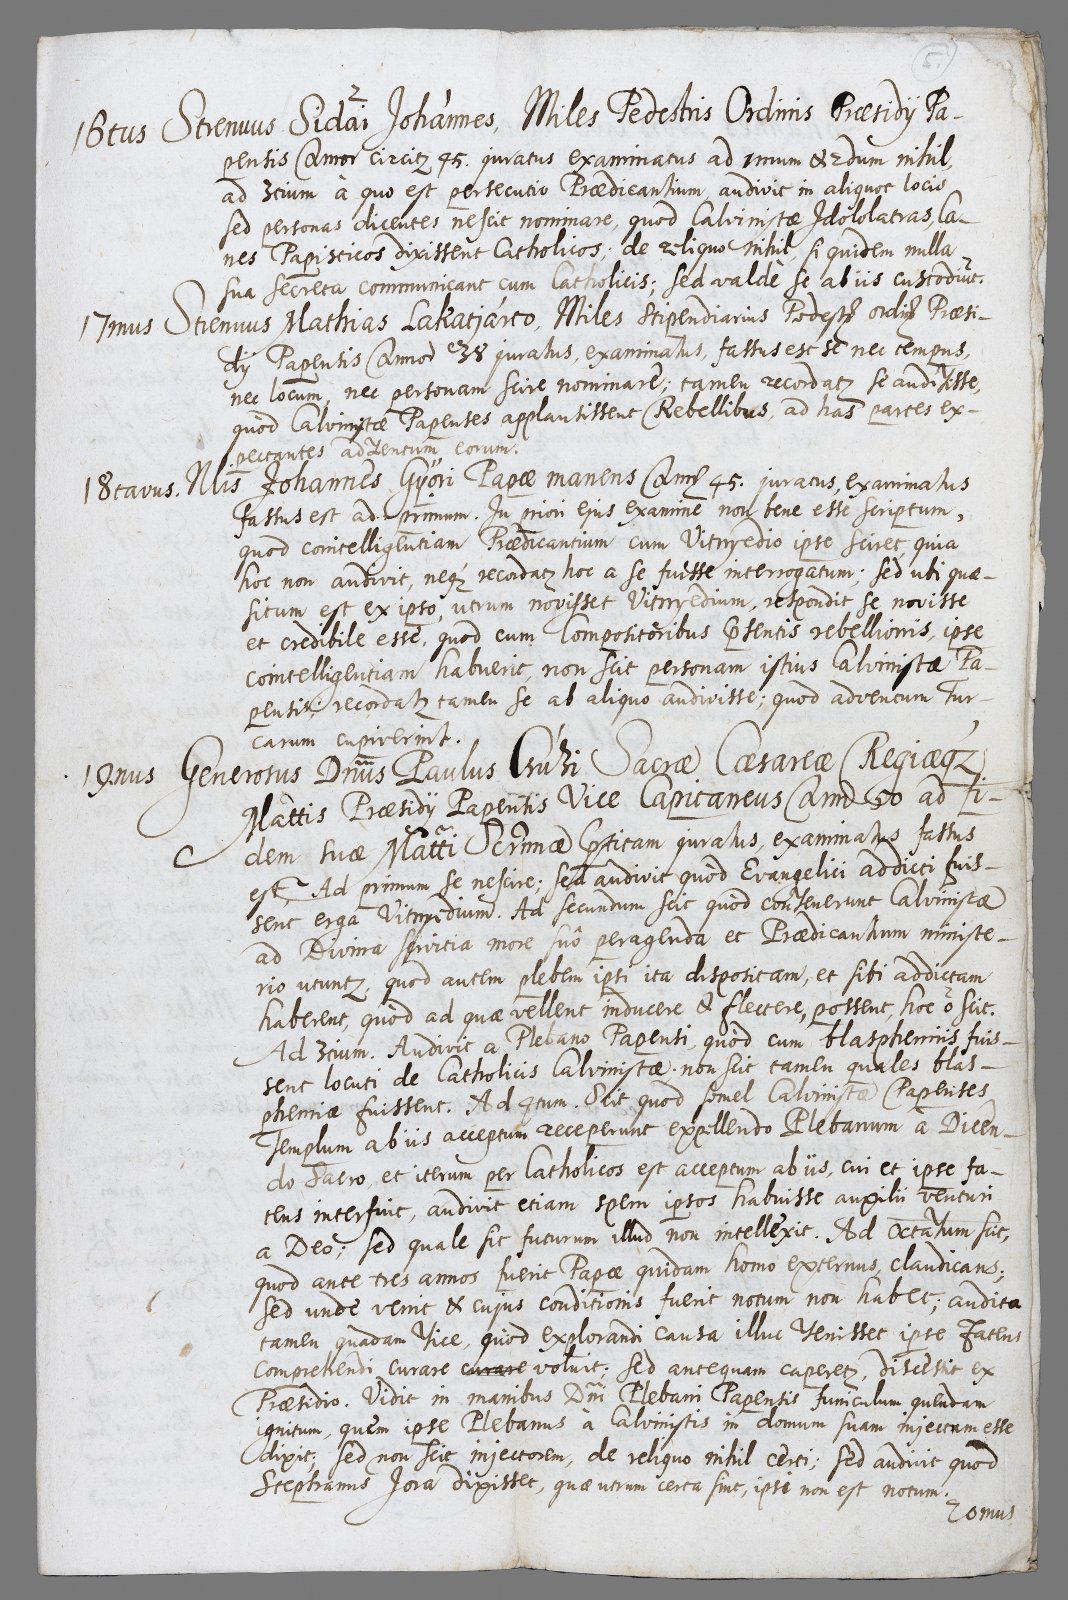 5.
16tus Strenuus Sidai Johannes, Miles Pedestris Ordinis Præsidij Pa-
pensis Annor circitz 45. juratus examinatus ad 1mum & 2dum nihil,
ad 3tium à quo est persecutio Prædicantium, audivit in aliquot locis
sed personas dicentes nescit nominare, quod Calvinistæ Idololatras, Ca-
nes Papisticos dixissent Catholicos; de reliquo nihil, si quidem nulla
sua secreta communicant cum Catholicis; sed valdè se ab iis custodiut.
17mus Strenuus Mathias Lakatjarto, Miles Stipendiarius Pedestr ordis Præsi-
dij Papensis Annor 38 juratus, examinatus, fassus est se nec tempus,
nec locum, nec personam scire nominare; tamen recordatz se audivisse,
quod Calvinistæ Papenses applausissent Rebellibus, ad has partes ex-
pectantes adventum eorum.
18tavus. Nlis Johannes Győri Papæ manens Annor 45. juratus, examinatus
fassus est ad primum. In priori ejus examine non bene esse scriptum,
quod cointelligentiam Prædicantium cum Vitnyedio ipse sciret, quia
hoc non audivit, neq recordatz hoc a se fuisse interrogatum; sed ubi quæ-
situm est ex ipso, utrum novisset Vitnyedium, respondit se novisse
et credibile esse, quod cum Compositoribus psentis rebellionis, ipse
cointelligentiam habuerit, non scit personam istius Calvinistæ Pa-
pensis; recordatz tamen se ab aliquo audivisse; quod adventum Tur-
carum cupiverint.
19nus Generosus Dnus Paulus Csuzi Sacræ Cæsareæ Regiæqz
Mattis Præsidij Papensis Vice Capitaneus Annor 50 ad fi-
dem suæ Matti Scrmæ pstitam juratus, examinatus fassus
est, Ad primum se nescire; sed audivit quod Evangelici addicti fuis-
sent erga Vitnyedium. Ad secundum scit quod convenerunt Calvinistæ
ad Divina servitia more suo peragenda et Prædicantium ministe-
rio utuntz, quod autem plebem ipsi ita dispositam, et sibi addictam
haberent, quod ad quæ vellent inducere & flectere, possent, hoc o scit.
Ad 3tium. Audivit a Plebano Papensi, quod cum blasphemiis fuis-
sent locuti de Catholicis Calvinistæ. non scit tamen quales blas-
phemiæ fuissent. Ad 4tum. Scit quod semel Calvinistæ Papenses
Templum ab iis acceptum receperunt expellendo Plebanum à Dicen-
do Sacro, et iterum per Catholicos est acceptum ab iis, cui et ipse fa-
tens interfuit, audivit etiam spem ipsos habuisse auxilii venturi
a Deo; sed quale sit futurum illud non intellexit. Ad Octavum scit,
quod ante tres annos fuerit Papæ quidam homo externus, claudicans;
sed unde venit & cujus conditionis fuerit notum non habet; audita
tamen quadam vice, quod explorandi causa illuc venisset ipse fatens
comprehendi curare curare voluit; sed antequam caperetz, discessit ex
Præsidio. Vidit in manibus Dni Plebani Papensis funiculum quendam
ignitum, quem ipse Plebanus à Calvinistis in domum suam injectum esse
dixit; sed non scit injectorem, de reliquo nihil certi; sed audivit quod
Stephanus Jora dixisset, quæ utrum certa sint, ipsi non est notum.
20mus